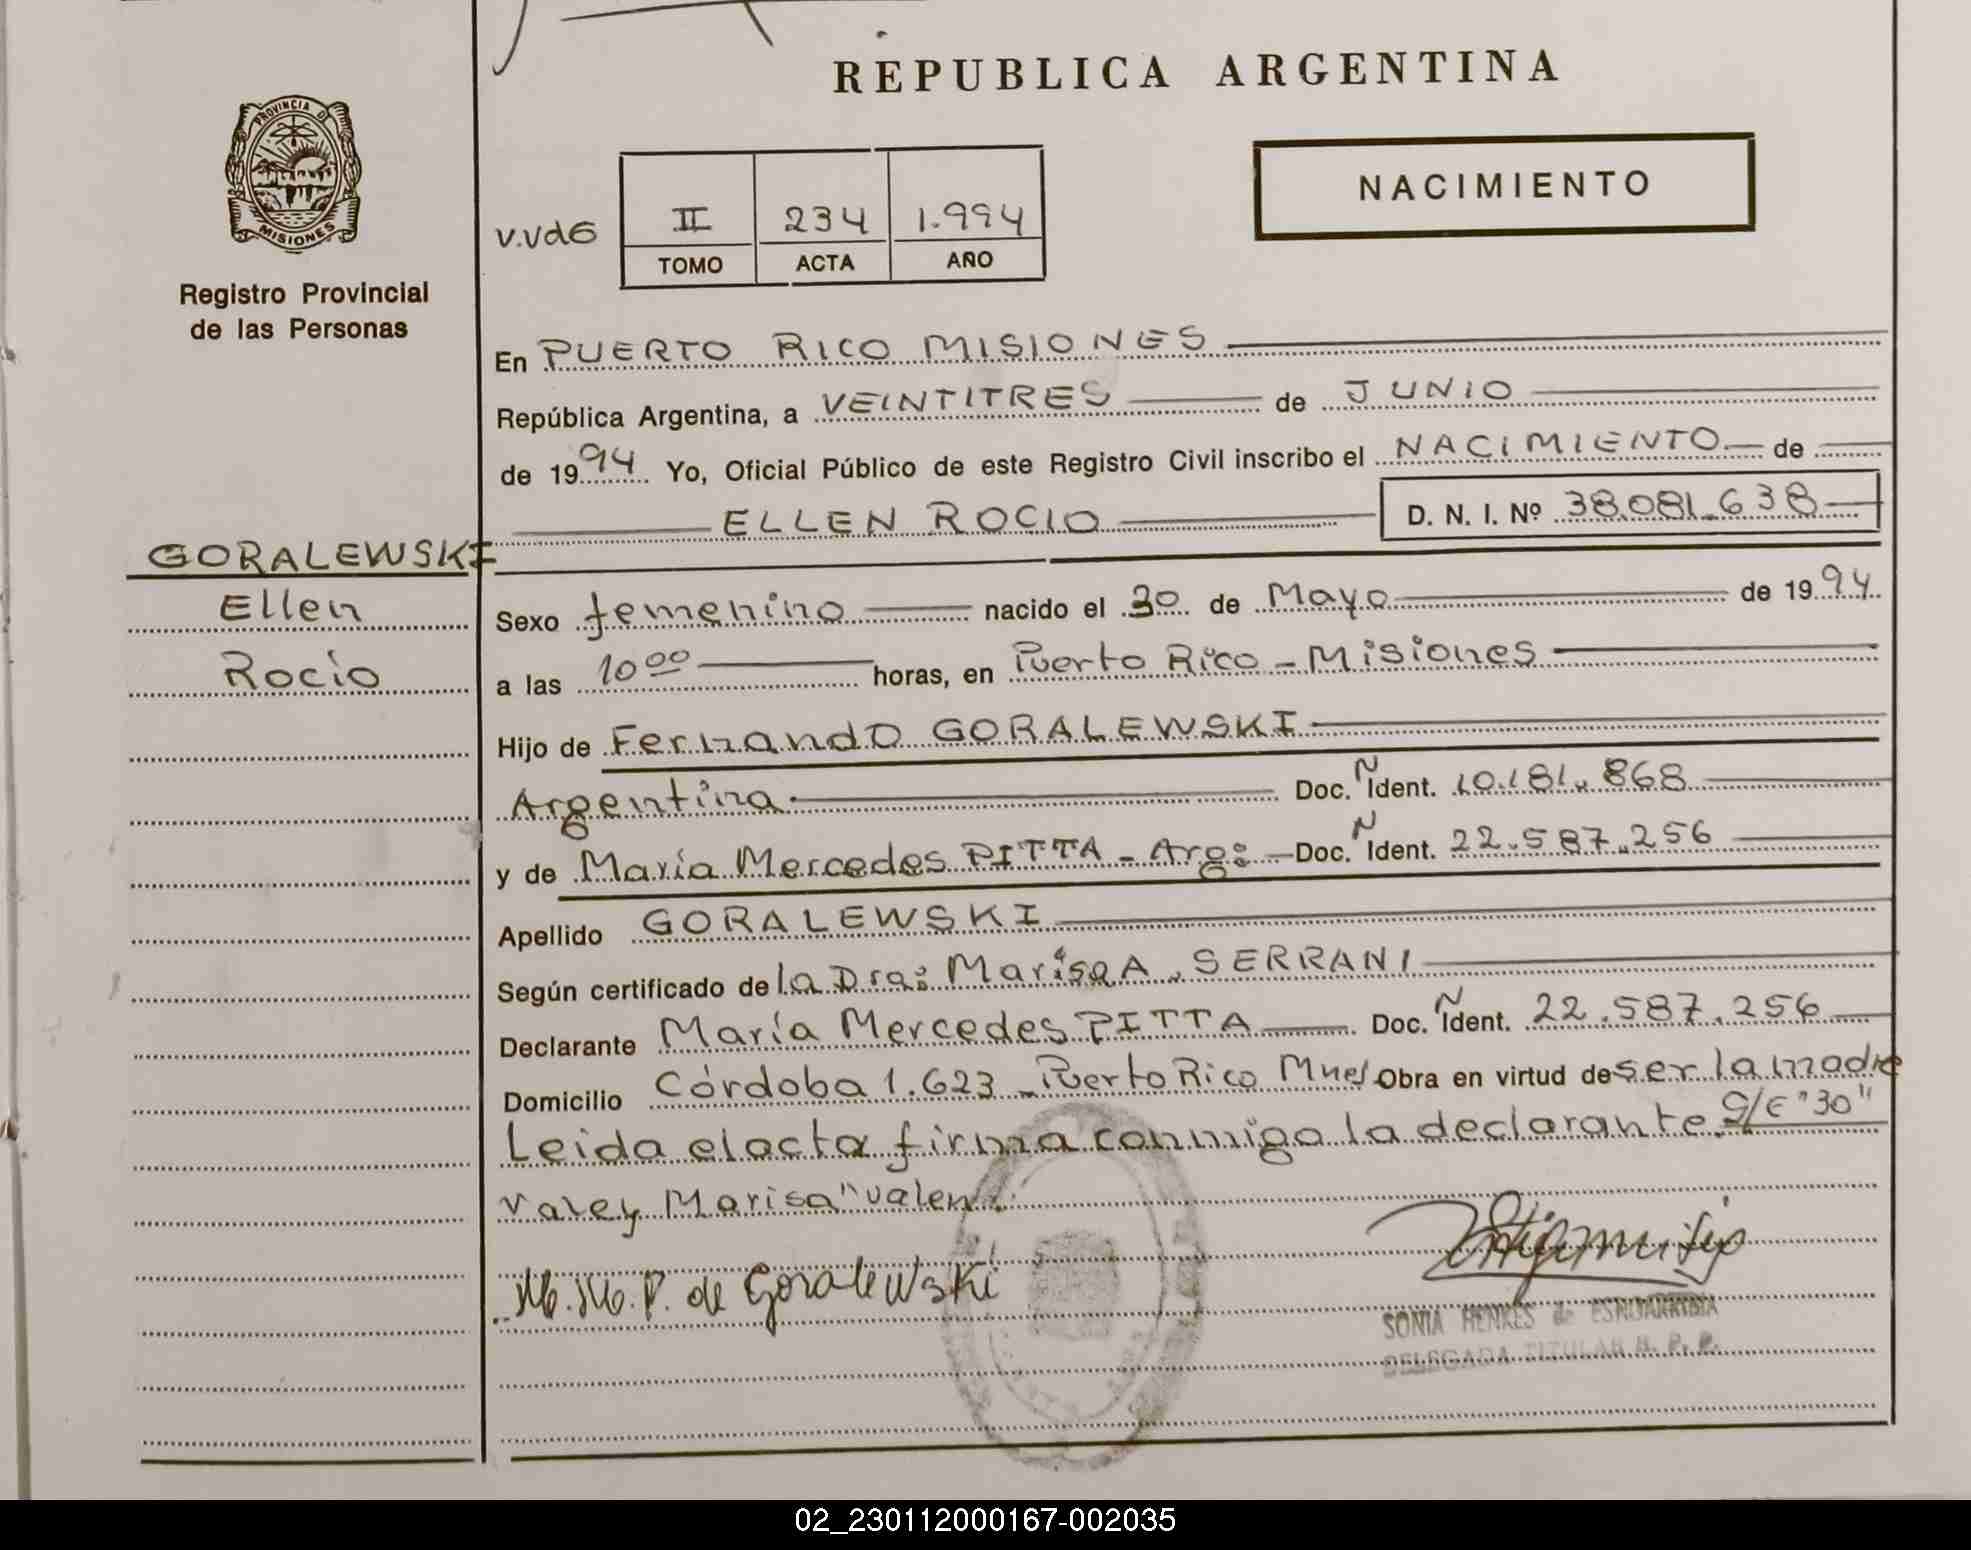 REPUBLICA ARGENTINA
PROVINCIA DE
MISIONES
Registro Provincial
de las Personas
NACIMIENTO
V.Vd6
II 234 1.994
TOMO ACTA AÑO
En PUERTO RICO MISIONES
República Argentina, a VEINTITRES de JUNIO
de 1994 Yo, Oficial Público de este Registro Civil inscribo el NACIMIENTO de
ELLEN ROCIO D. N. I. Nº 38.081.638
GORALEWSKI
Ellen
Rocío
Sexo femenino nacido el 30 de Mayo de 1994
a las 10 00 horas, en Puerto Rico - Misiones
Hijo de Fernando GORALEWSKI
Argentina Doc. N Ident. 10.181.868
y de María Mercedes PITTA - Arg: Doc. N Ident. 22.587.256
Apellido GORALEWSKI
Según certificado de la Dra: Marisa A. SERRANI
Declarante María Mercedes PITTA Doc. N Ident. 22.587.256
Domicilio Córdoba 1.623 - Puerto Rico Mnes Obra en virtud de ser la madre
Leida el acta firma conmigo la declarante. S/E "30"
Vale y Marisa "valen".
M. M. P. de Goralewski
SONIA HENKES de
DELEGADA TITULAR R. P. P.
02_230112000167-002035